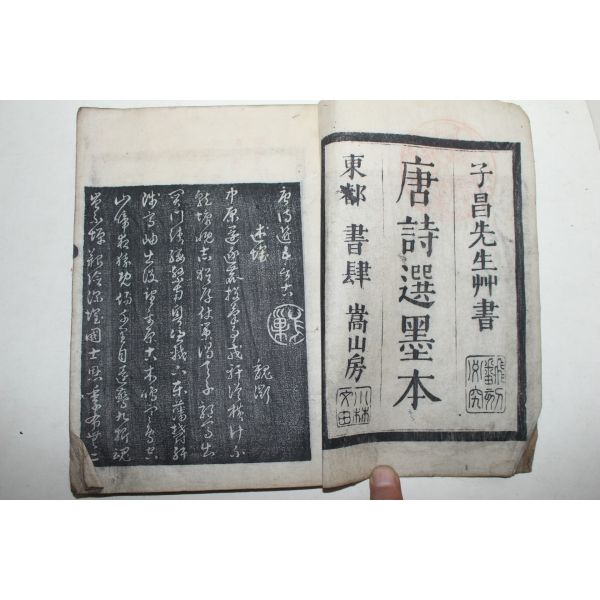 子昌先生艸書
唐詩選墨本
東都 書肆 嵩山房
唐詩選五言古
述懐 魏徴
中原還逐鹿投筆事戎軒縱横計不
就慷慨志猶存仗策謁天子驅馬出
關門請纓繫南粤憑軾下東藩鬱紆
陟高岫出没望平原古木鳴寒鳥空
山啼夜猿既傷千里目還驚九折魂
豈不憚艱險深懐國士恩季布無二